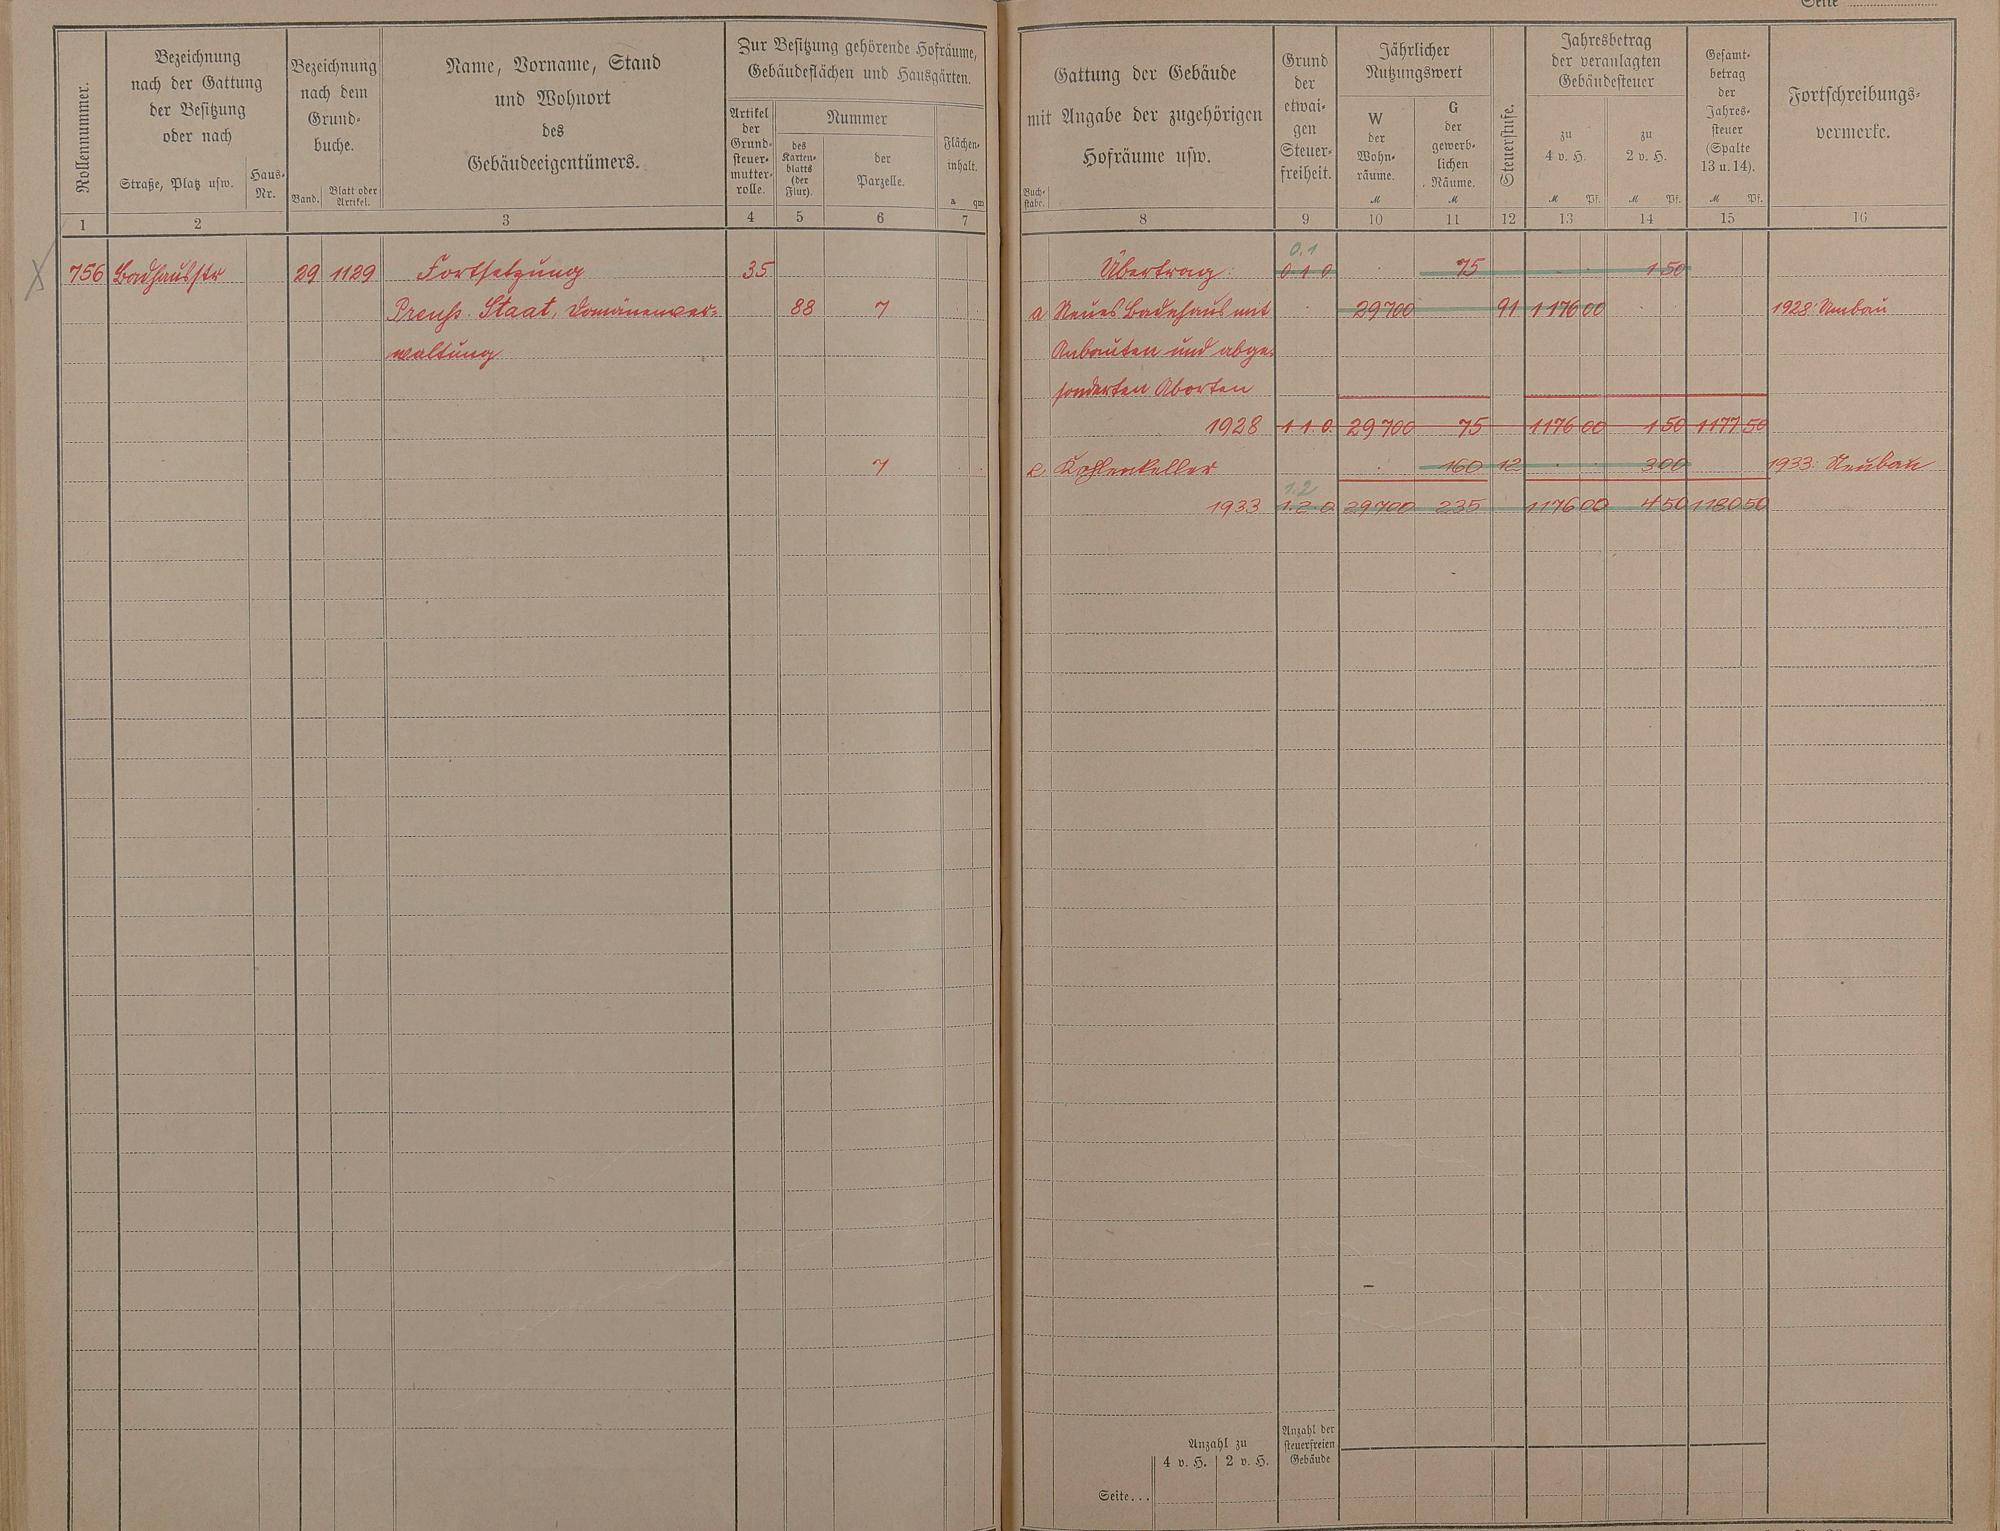 Seite
Rollennummer.
Bezeichnung
nach der Gattung
der Besitzung
oder nach
Straße, Platz usw.
Haus-
Nr.
Bezeichnung
nach dem
Grund-
buche.
Band.
Blatt oder
Artikel.
Name, Vorname, Stand
und Wohnort
des
Gebäudeeigentümers.
Zur Besitzung gehörende Hofräume,
Gebäudeflächen und Hausgärten.
Artikel
der
Grund-
steuer-
mutter-
rolle.
Nummer
des
Karten-
blatts
(der
Flur).
der
Parzelle.
Flächen-
inhalt.
a qm
1 2 3 4 5 6 7
Gattung der Gebäude
mit Angabe der zugehörigen
Hofräume usw.
Buch-
stabe.
Grund
der
etwai-
gen
Steuer-
freiheit.
Jährlicher
Nutzungswert
W
der
Wohn-
räume.
M
G
der
gewerb-
lichen
Räume.
M
Steuerstufe.
Jahresbetrag
der veranlagten
Gebäudesteuer
zu
4 v. H.
M Pf.
zu
2 v. H.
M Pf.
Gesamt-
betrag
der
Jahres-
steuer
(Spalte
13 u. 14).
M Pf.
Fortschreibungs-
vermerke.
8 9 10 11 12 13 14 15 16
756 Badhausstr 29 1129 Fortsetzung 35
Preuß. Staat, Domänenver-
88 7
waltung
7
0.1
Übertrag: 0 1 0 75 1 50
a Neues Badehaus mit 29700 91 1176 00 1928: Umbau
Anbauten und abge-
sonderten Aborten
1928 1. 1. 0. 29700 75 1176 00 1 50 1177 50
c. Kohlenkeller 160 12 3 00 1933: Neubau
1.2
1933 1. 2. 0 29700 235 1176 00 4 50 1180 50
Anzahl zu
4 v. H. 2 v. H.
Anzahl der
steuerfreien
Gebäude
Seite...